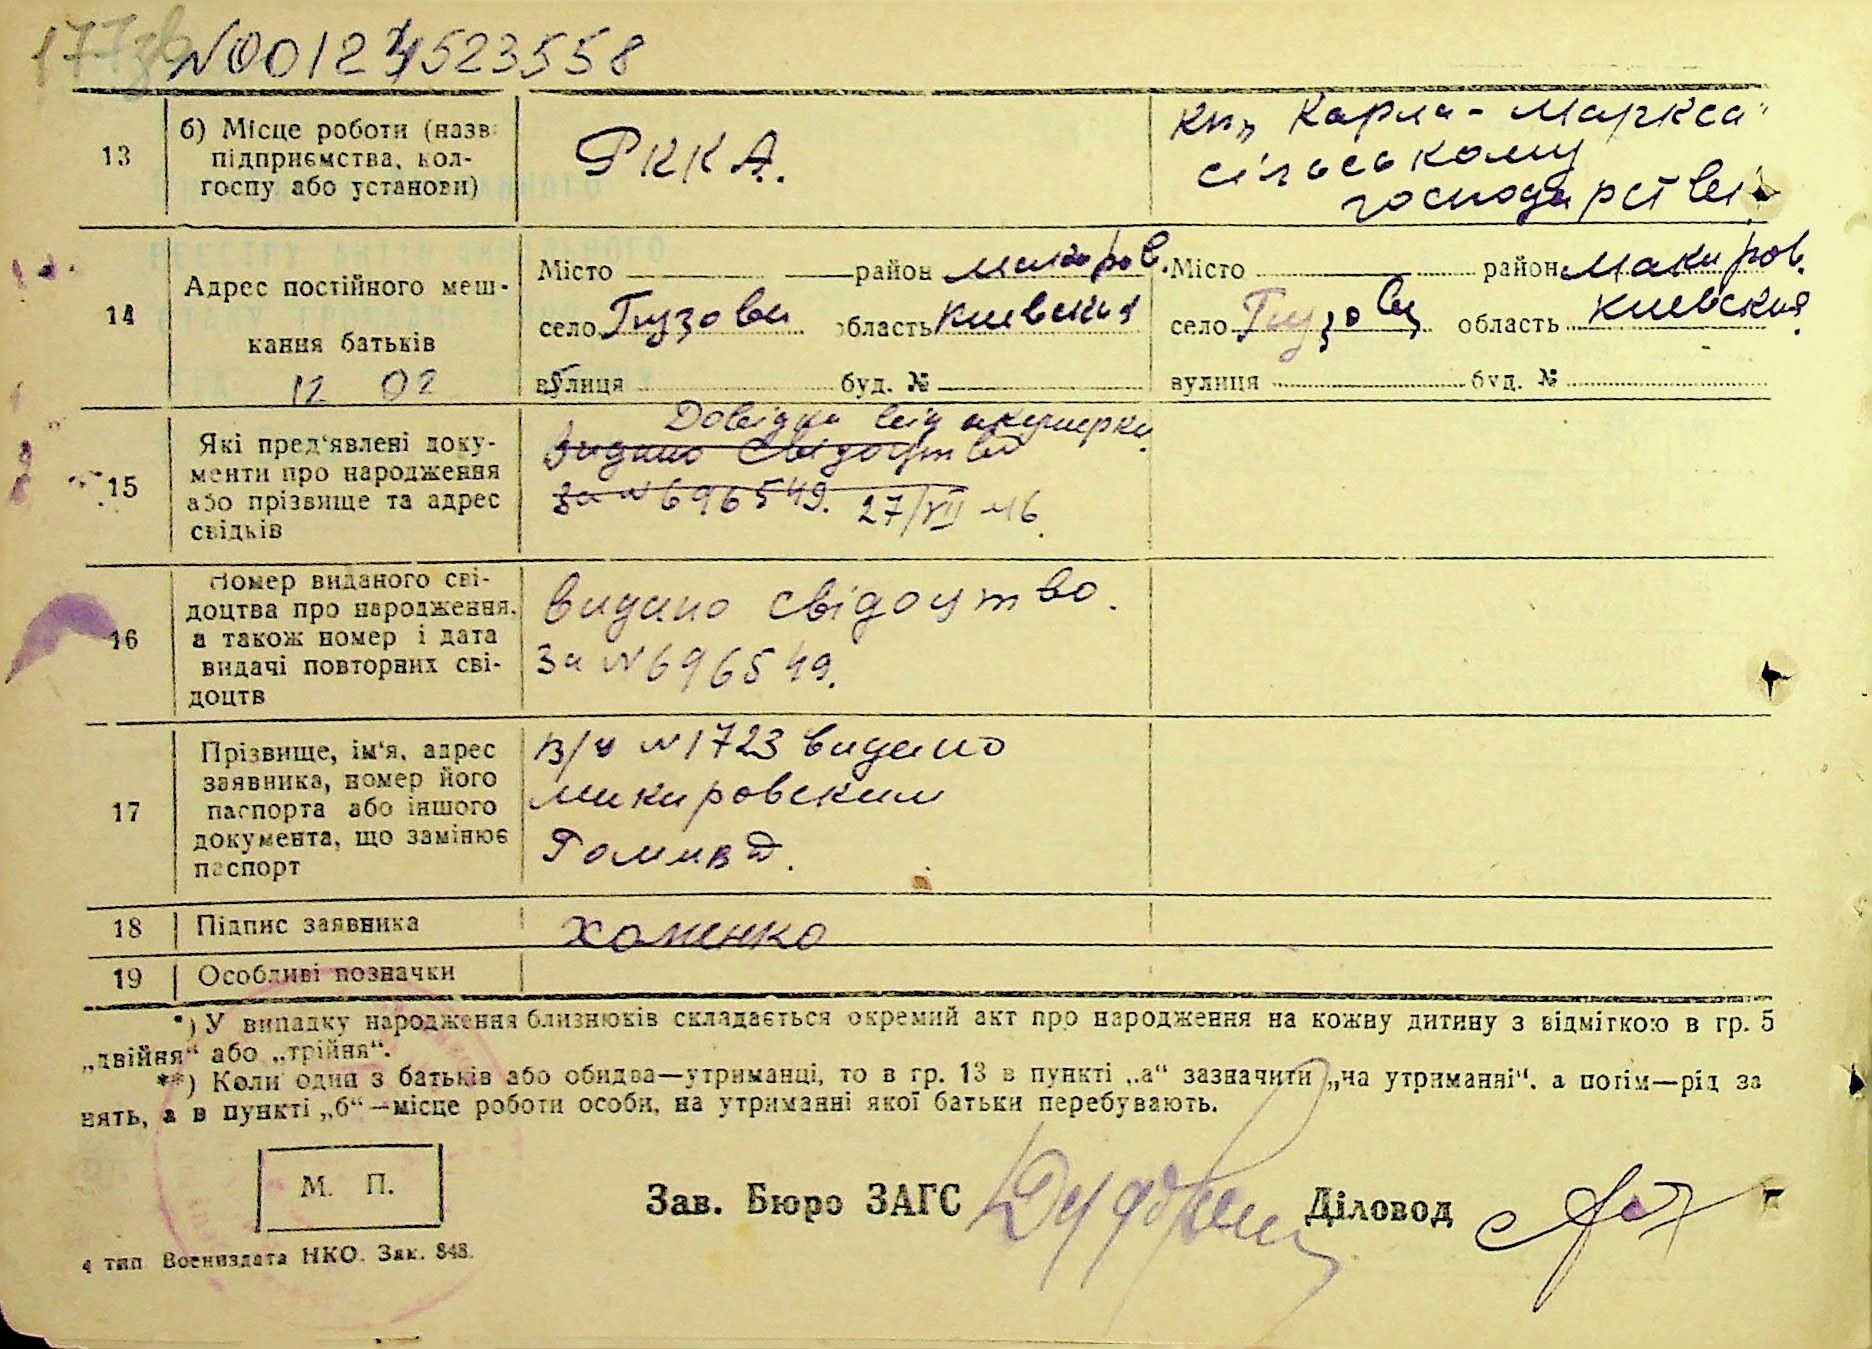 177зв
N00124523558
13
б) Місце роботи (назв
підприємства, кол-
госпу або установи)
РККА.
Кп „Карла-Маркса"
сільському
господарстві
14
Адрес постійного меш-
кання батьків
12 02
Місто район Макаров.
село область Киевская
вулиця буд. №
Місто район Макаров.
село область Киевская
вулиця буд. №
15
Які пред'явлені доку-
менти про народження
або прізвище та адрес
свідків
Довідка від акушерки
видано свідоцтво
За N696549. 27/VII 46.
16
Номер виданого сві-
доцтва про народження,
а також номер і дата
видачі повторних сві-
доцтв
видано свідоцтво.
За N696549.
17
Прізвище, ім'я, адрес
заявника, номер його
паспорта або іншого
документа, що замінює
паспорт
В/ч N1723 видано
Макаровским
18
Підпис заявника
Хоменко
19
Особливі позначки
*) У випадку народження близнюків складається окремий акт про народження на кожну дитину з відміткою в гр. 5
„двійня" або „трійня".
**) Коли один з батьків або обидва—утриманці, то в гр. 13 в пункті „а" зазначити „на утриманні", а потім—рід за
нять, а в пункті „б"—місце роботи особи, на утриманні якої батьки перебувають.
М. П.
Зав. Бюро ЗАГС
Діловод
4 тип Воениздата НКО. Зак. 848.